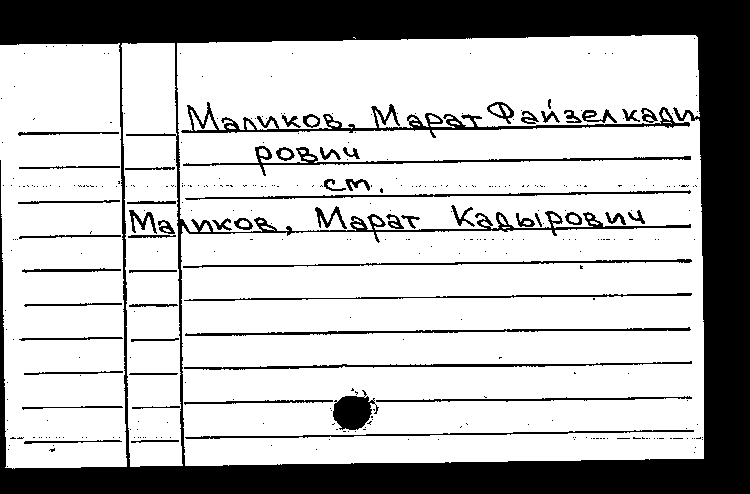 Маликов, Марат Файзелкади-
рович
см.
Маликов, Марат Кадырович